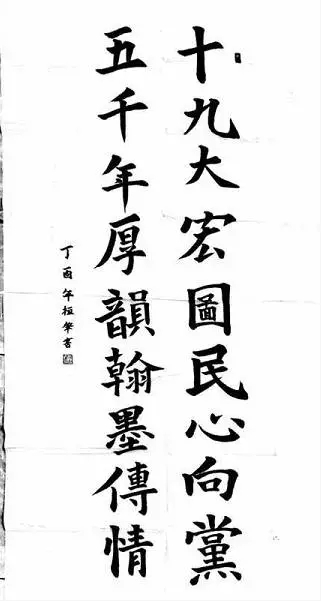 十九大宏圖民心向黨
五千年厚韻翰墨傳情
丁酉年恒肇書